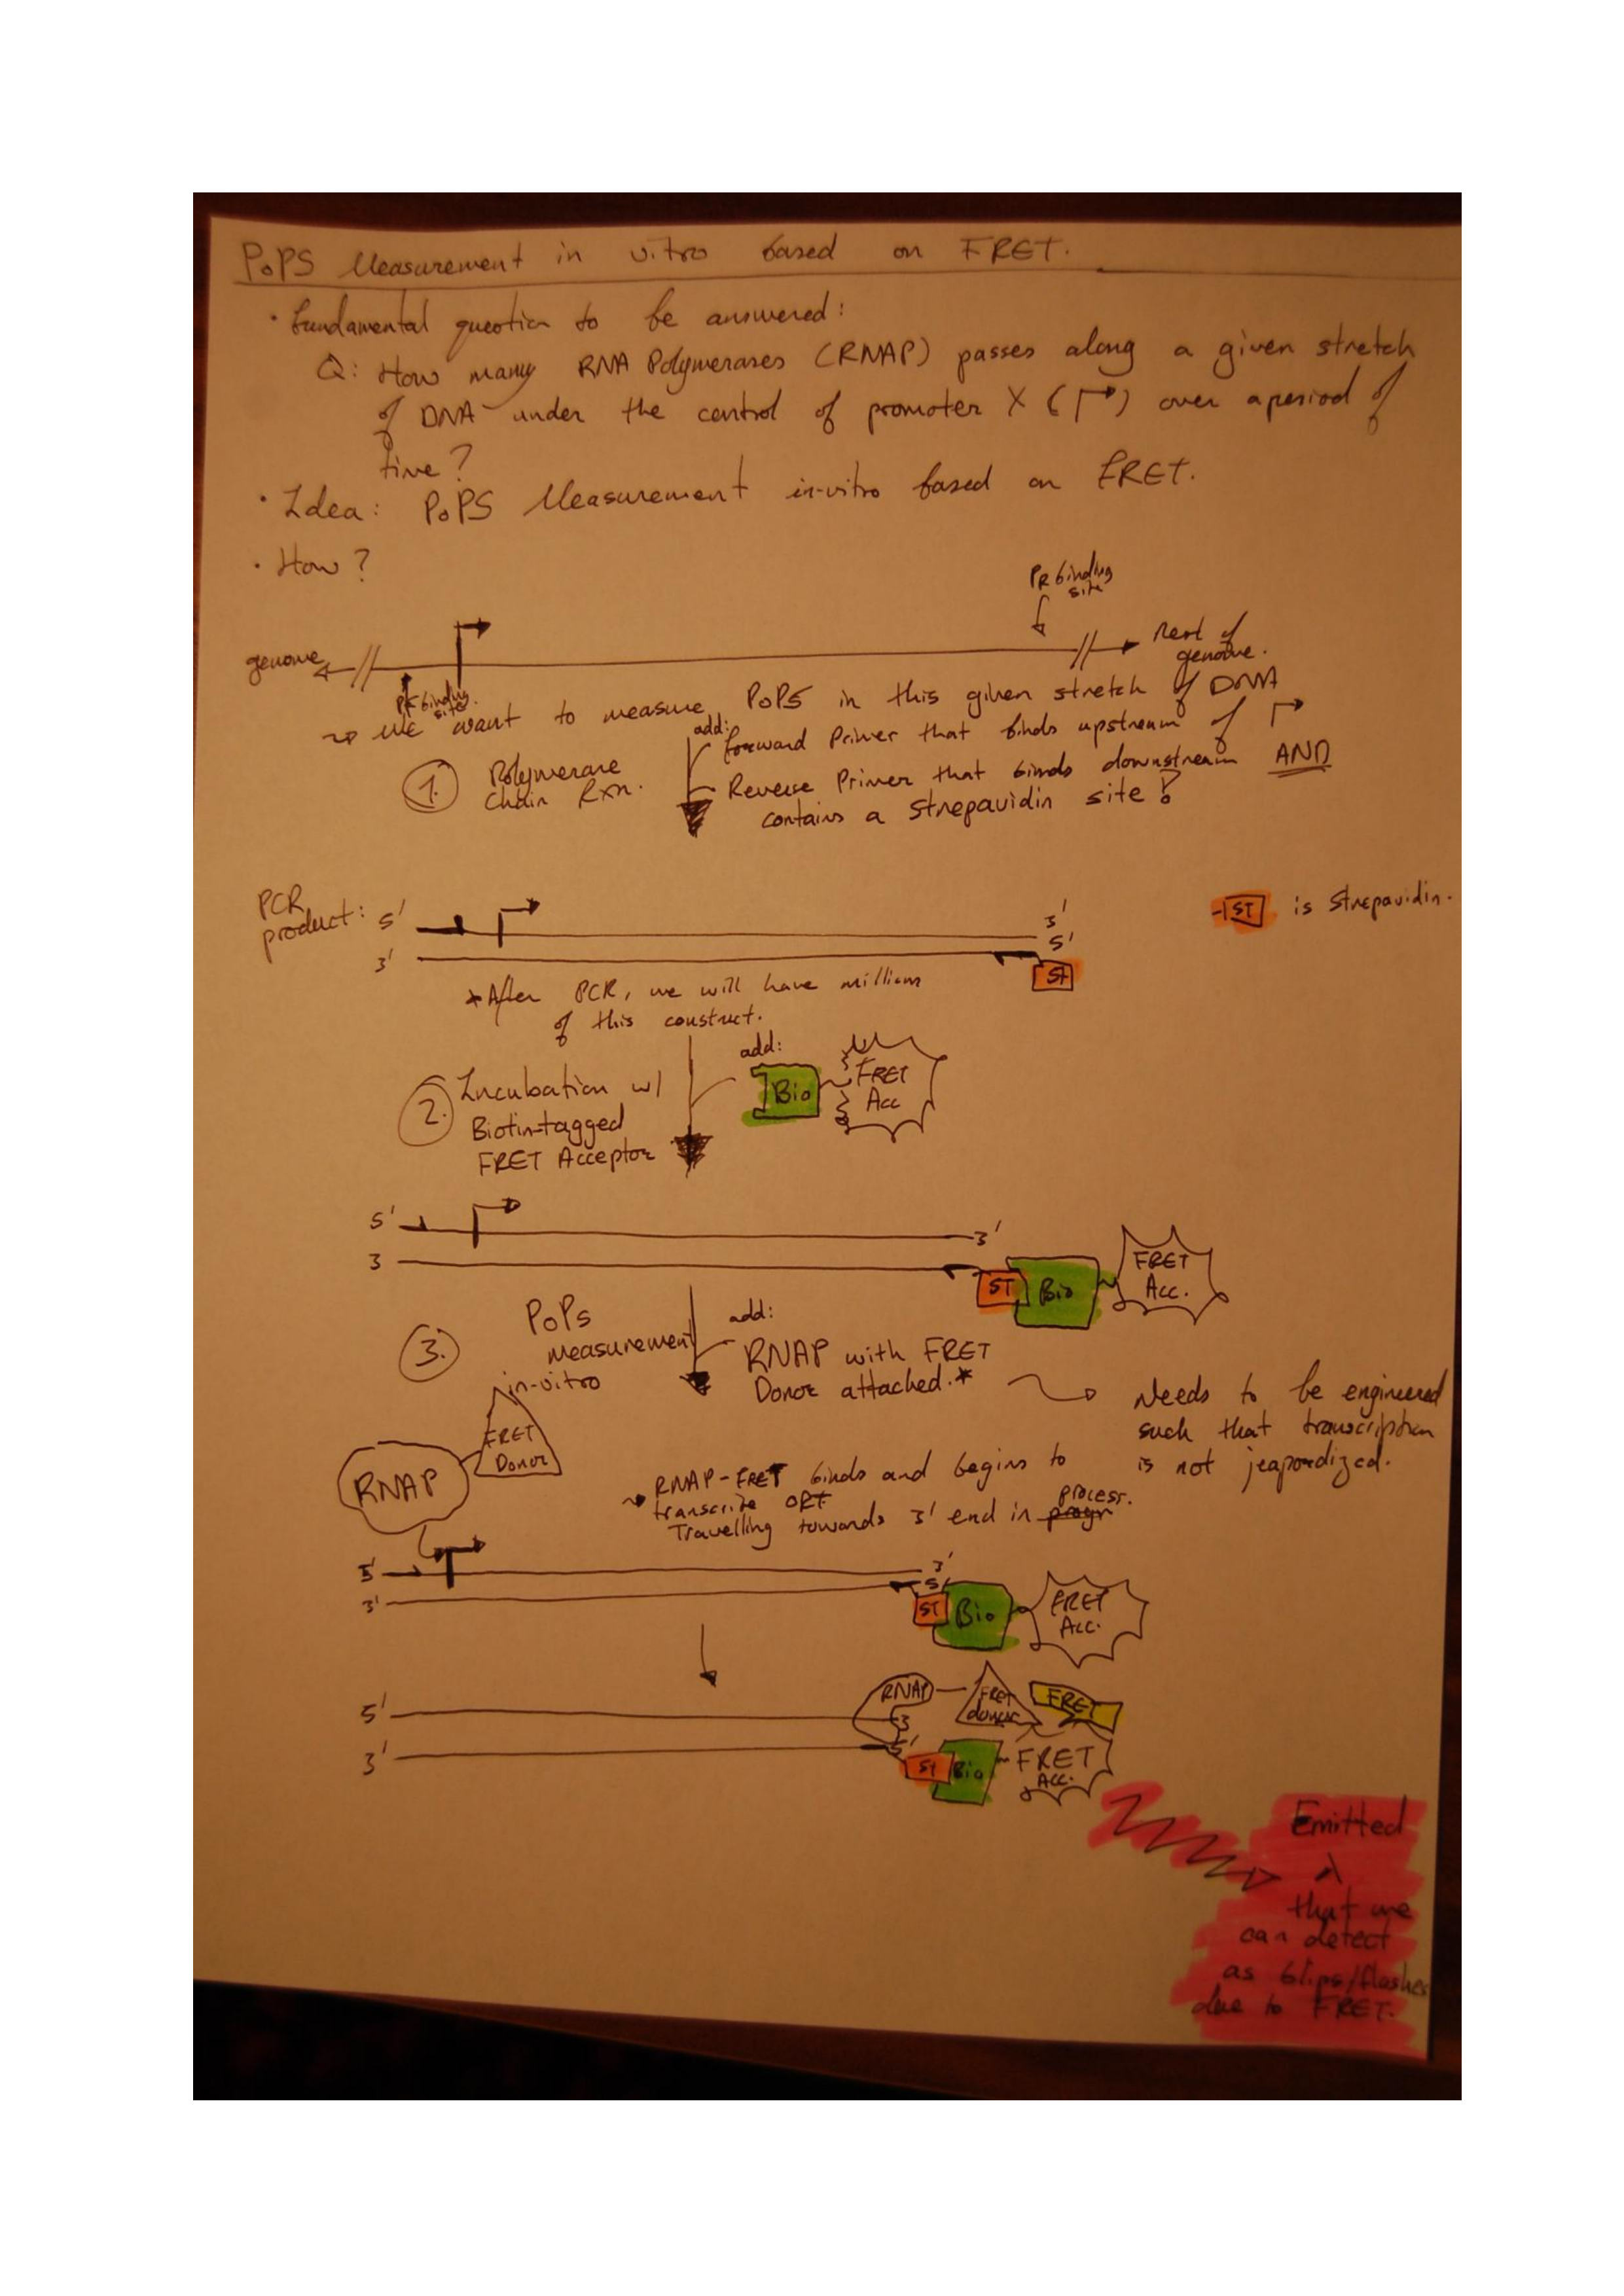 PoPS Measurement in vitro based on FRET.
· fundamental question to be answered:
Q: How many RNA Polymerases (RNAP) passes along a given stretch
of DNA under the control of promoter X ( ) over a period of
time?
· Idea: PoPS Measurement in-vitro based on FRET.
· How?
PR binding
site
genome
Rest of
genome.
PF binding
site
we want to measure PoPS in this given stretch of DNA
add:
forward Primer that binds upstream of
1. Polymerase
Chain Rxn.
Reverse Primer that binds downstream AND
contains a strepavidin site!
PCR
product:
5'
3'
3'
5'
ST
ST is strepavidin.
*After PCR, we will have millions
of this construct.
add:
Bio
FRET
Acc
2. Incubation w/
Biotin-tagged
FRET Acceptor
5'
3'
3
ST
Bio
FRET
Acc.
3. PoPs
measurement
in-vitro
add:
RNAP with FRET
Donor attached.*
Needs to be engineered
such that transcription
is not jeapordized.
FRET
Donor
RNAP
RNAP-FRET binds and begins to
transcribe ORF
Travelling towards 3' end in progr process.
5'
3'
3'
5'
ST
Bio
FRET
Acc.
5'
3'
RNAP
FRET
donor
FRET
3
5'
ST
Bio
FRET
Acc.
Emitted
λ
that we
can detect
as blips/flashes
due to FRET.